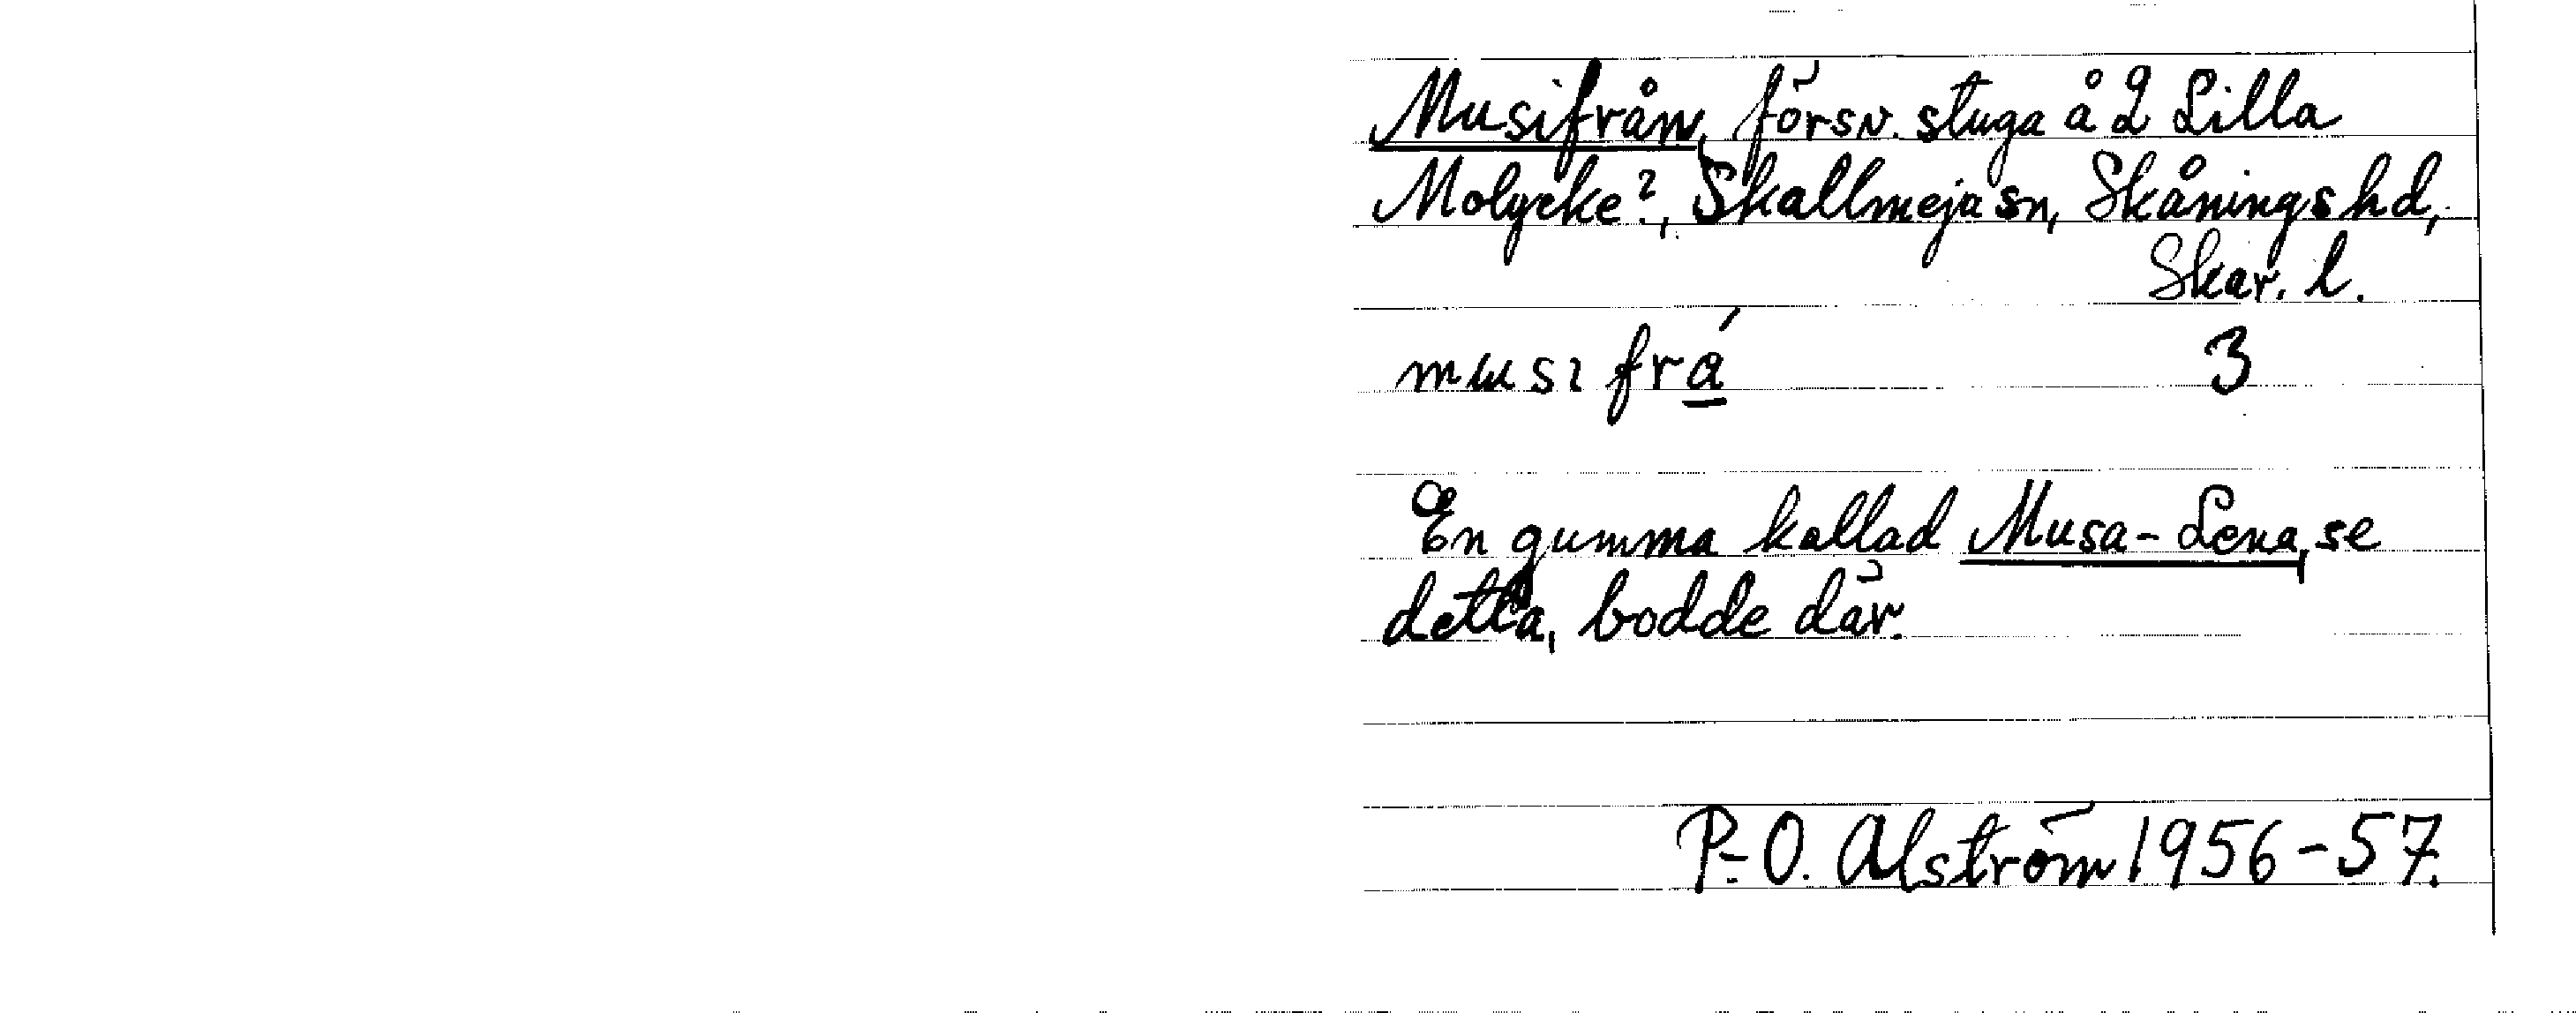 Musifrån, försv. stuga å 2 Lilla
Molycke 2, Skallmeja sn, Skånings hd,
Skar. l.
musı frá 3
En gumma kallad Musa-Lena, se
detta, bodde där.
P.-O. Alström 1956-57.